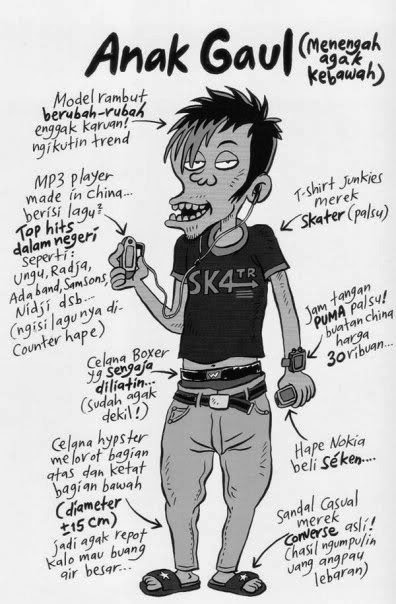 Anak Gaul (Menengah
agak
kebawah)
Model rambut
berubah-rubah
enggak karuan!
ngikutin trend
MP3 player
made in China...
berisi lagu²
Top hits
dalam negeri
seperti:
ungu, Radja,
Ada band, Samsons,
Nidji dsb....
(ngisi lagunya di-
Counter hape)
T-shirt Junkies
merek
Skater (palsu)
SK4TR
Jam tangan
PUMA palsu!
buatan china
harga
30 ribuan...
Celana Boxer
yg sengaja
diliatin...
(sudah agak
dekil!)
Hape Nokia
beli séken....
Celana hypster
melorot bagian
atas dan ketat
bagian bawah
(diameter
±15 cm)
jadi agak repot
kalo mau buang
air besar...
Sandal Casual
merek
Converse asli!
(hasil ngumpulin
uang angpau
lebaran)